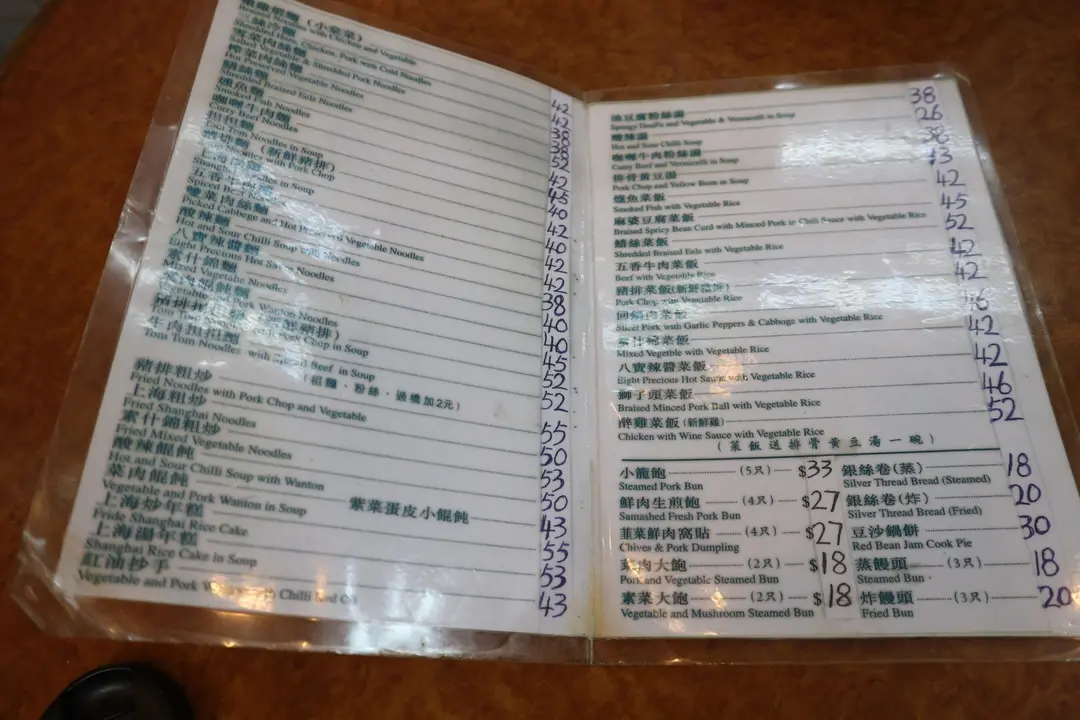 Braised Noodles with Chicken and Vegetable
Shredded Ham, Chicken, Pork with Cold Noodles
雪菜肉絲麵
Vegetable & Shredded Pork Noodles 42
榨菜肉絲麵
Hot Preserved Vegetable Noodles 42
鱔絲麵 38
Shredded Braised Eels Noodles 38
燻魚麵 52
Smoked Fish Noodles
咖喱牛肉麵 42
Curry Beef Noodles 45
担担麵 40
Tom Tom Noodles in Soup
排麵 (新鮮豬排) 42
Noodles with Pork Chop 40
上海
Noodles in Soup 42
五香牛肉麵
Spiced Beef Noodles 42
雙菜肉絲麵
Picked Cabbege and Hot Preserved Vegetable Noodles 38
酸辣麵
Hot and Sour Chilli Soup with Noodles 40
八寶辣醬麵
Eight Precious Hot Sauce Noodles 40
素什錦麵
Mixed Vagetable Noodles 45
菜肉餛飩麵
Vegetable and Pork Wanton Noodles 52
豬排担担麵 (新鮮豬排)
Tom Tom Noodles with Pork Chop in Soup 52
牛肉担担麵
Tom Tom Noodles with Spiced Beef in Soup
(粗麵、粉絲、過橋加2元)
豬排粗炒 55
Fried Noodles with Pork Chop and Vegetable
上海粗炒 50
Fried Shanghai Noodles
素什錦粗炒 53
Fried Mixed Vegetable Noodles
酸辣餛飩 50
Hot and Sour Chilli Soup with Wanton
菜肉餛飩 紫菜蛋皮小餛飩 43
Vegetable and Pork Wanton in Soup
上海炒年糕 55
Fride Shanghai Rice Cake
上海湯年糕 53
Shanghai Rice Cake in Soup
紅油抄手 43
Vegetable and Pork with Chilli
油豆腐粉絲湯 38
Spongy Doufu and Vegetable & Vermicelli in Soup
酸辣湯 26
Hot and Sour Chilli Soup
咖喱牛肉粉絲湯 38
Curry Beef and Vermicelli in Soup
排骨黃豆湯 43
Pork Chop and Yellow Bean in Soup
燻魚菜飯 42
Smoked Fish with Vegetable Rice
麻婆豆腐菜飯 45
Braised Spicy Bean Curd with Minced Pork in Chili Sauce with Vegetable Rice
鱔絲菜飯 52
Shredded Braised Eels with Vegetable Rice
五香牛肉菜飯 42
Beef with Vegetable Rice
豬排菜飯(新鮮豬排) 42
Pork Chop with Vegetable Rice
回鍋肉菜飯 46
Slicel Pork with Garlic Peppers & Cabboge with Vegetable Rice
素什錦菜飯 42
Mixed Vegetble with Vegetable Rice
八寶辣醬菜飯 42
Eight Precious Hot Sauce with Vegetable Rice
獅子頭菜飯 46
Braised Minced Pork Ball with Vegetable Rice
醉雞菜飯(新鮮雞) 52
Chicken with Wine Sauce with Vegetable Rice
(菜飯送排骨黄豆湯一碗)
小籠飽 (5只) $33
Steamed Pork Bun
鮮肉生煎飽 (4只) $27
Samashed Fresh Pork Bun
韮菜鮮肉窩貼 (4只) $27
Chives & Pork Dumpling
菜肉大飽 (2只) $18
Pork and Vegetable Steamed Bun
素菜大飽 (2只) $18
Vegetable and Mushroom Steamed Bun
銀絲卷(蒸) 18
Silver Thread Bread (Steamed)
銀絲卷(炸) 20
Silver Thread Bread (Fried)
豆沙鍋餅 30
Red Bean Jam Cook Pie
蒸饅頭 (3只) 18
Steamed Bun
炸饅頭 (3只) 20
Fried Bun